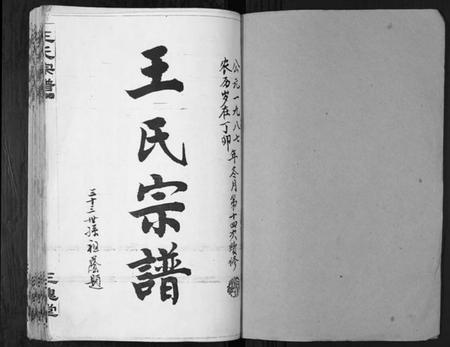 公元一九八七年冬月第十四次增修
农历岁在丁卯
王氏宗譜
三十二世孫祖蔭題
王氏宗譜
三槐堂